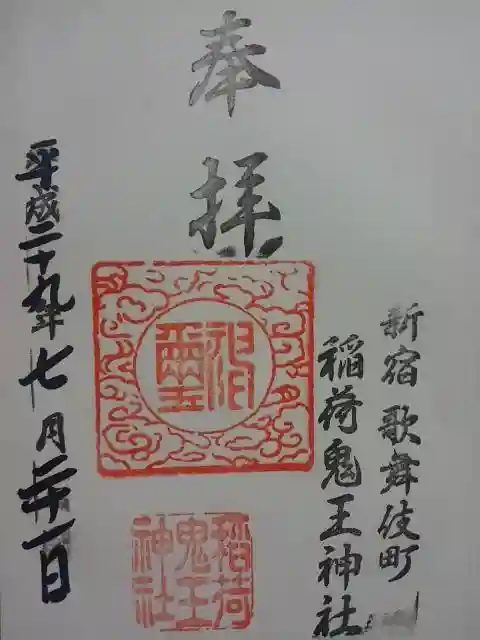 新宿歌舞伎町
稲荷鬼王神社
奉拝
稲荷
鬼王
神社
平成二十九年七月二十一日